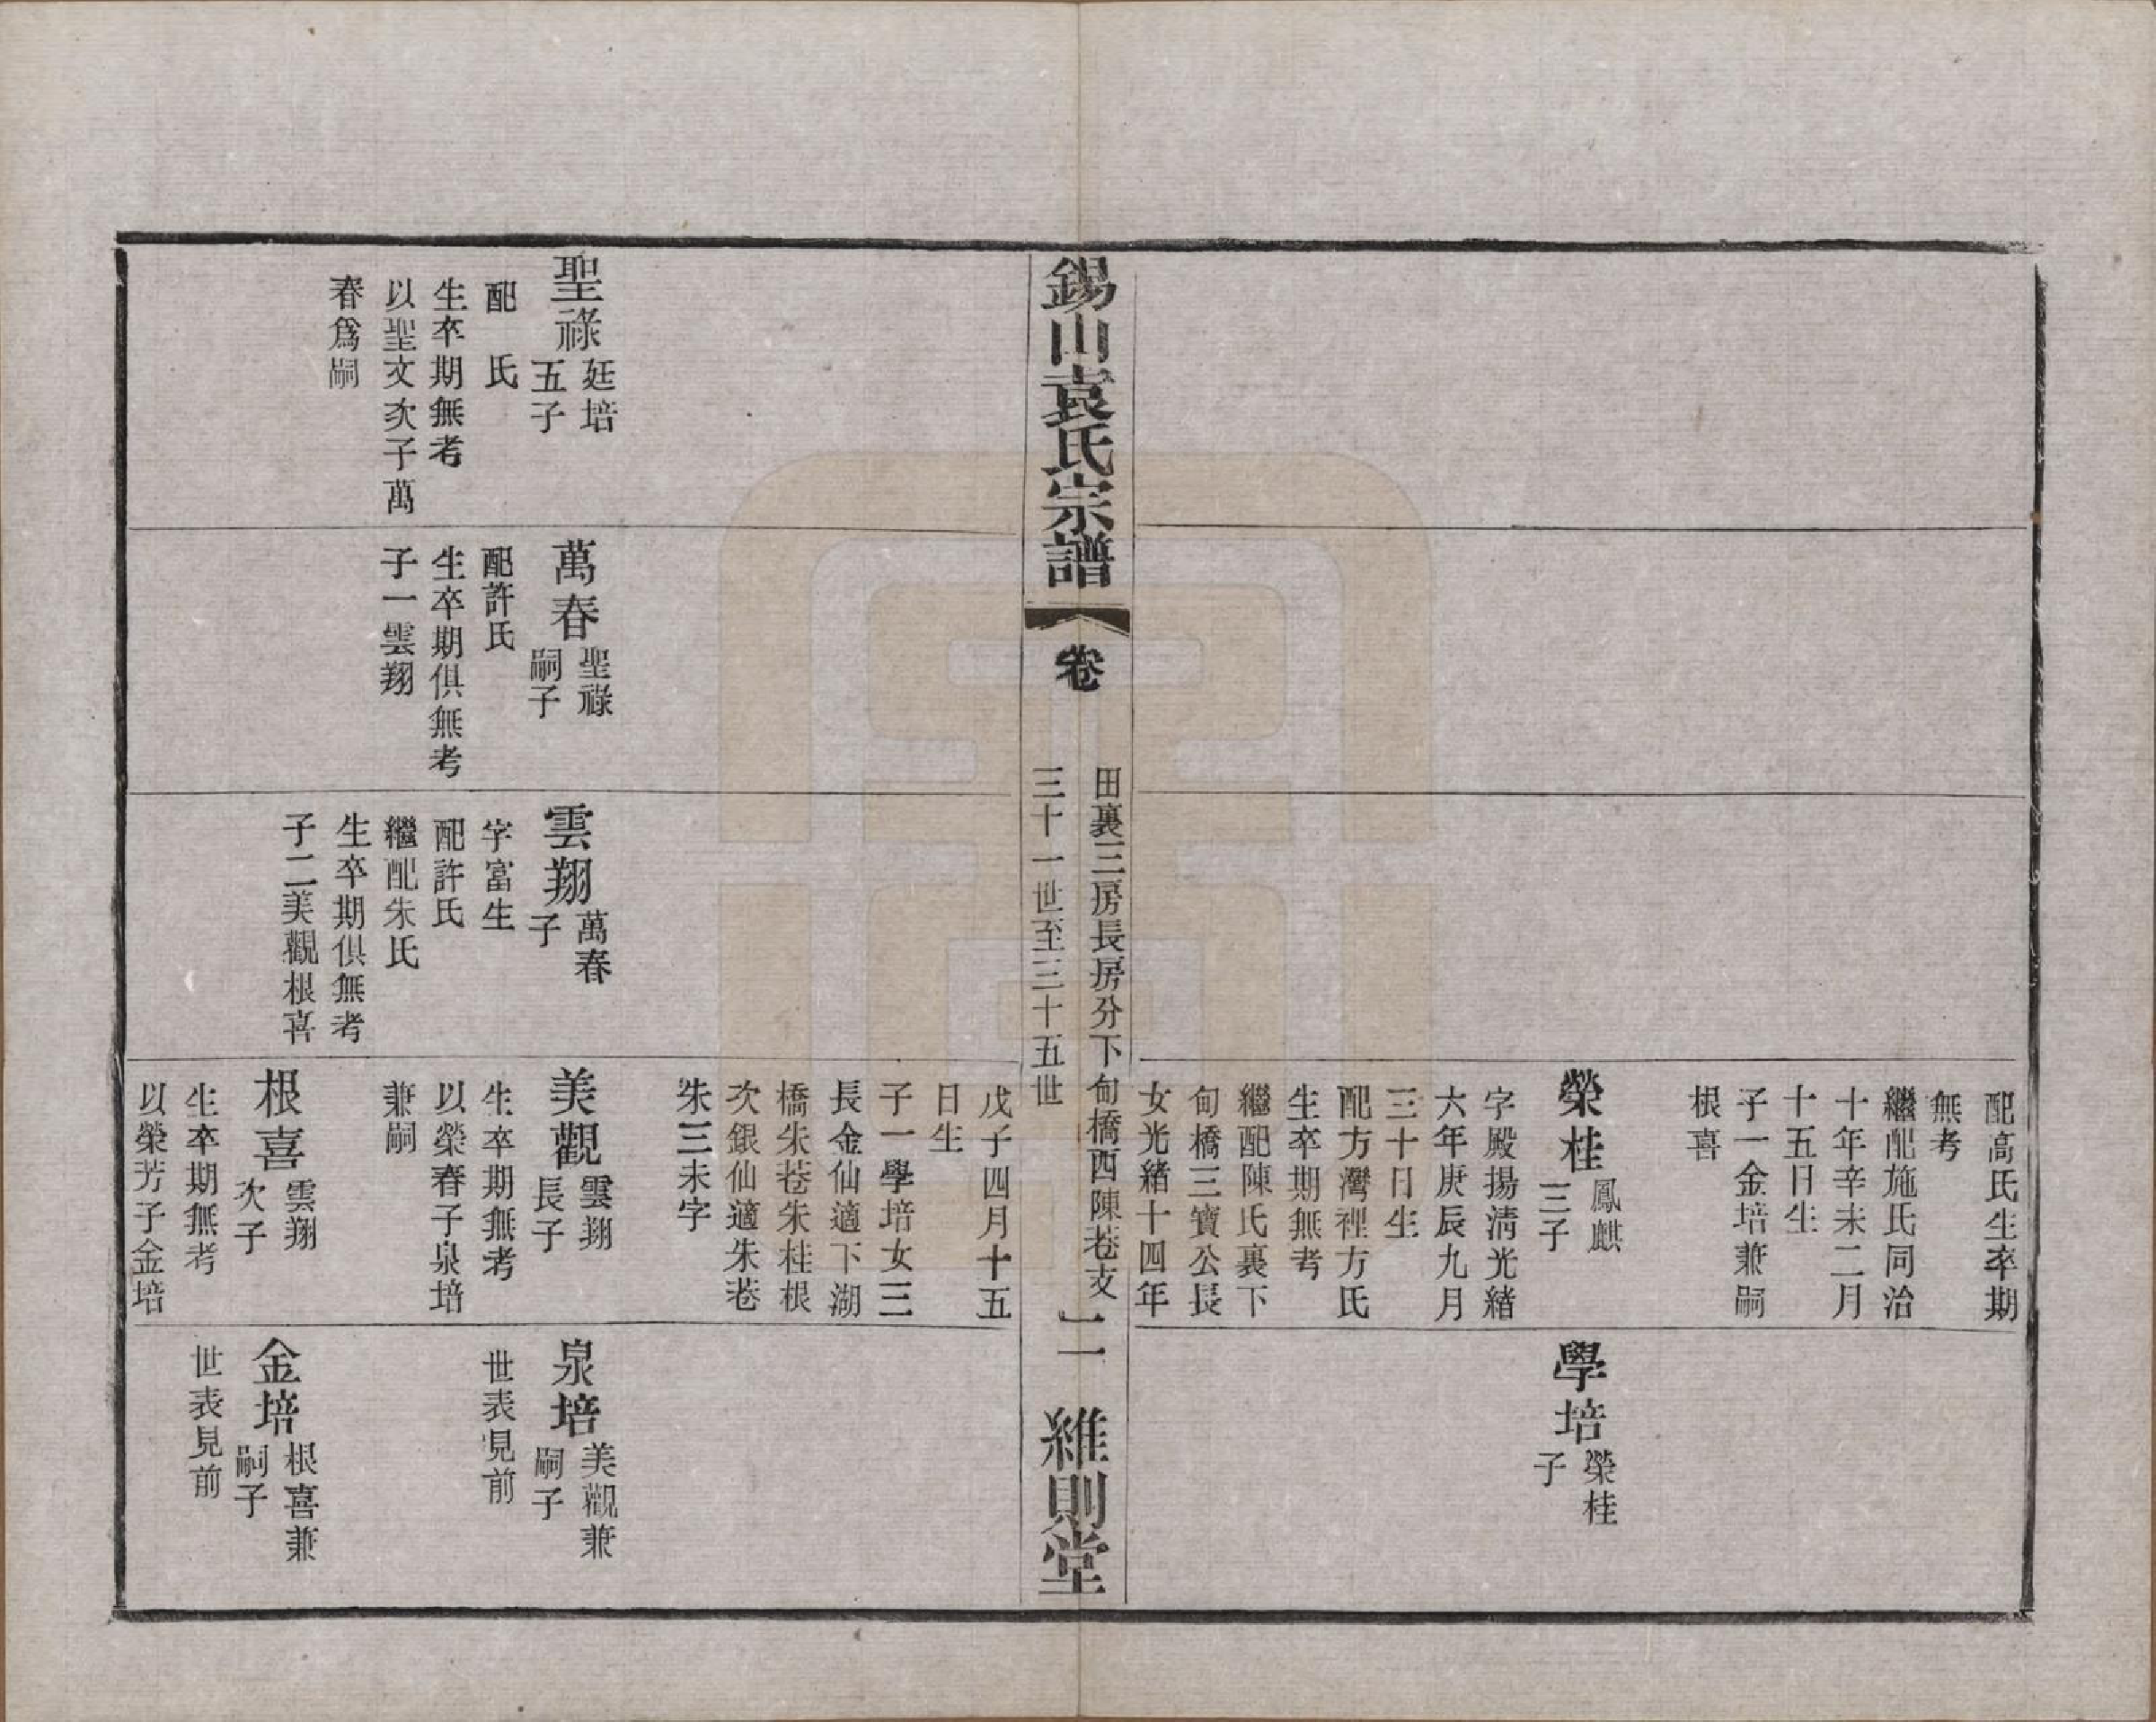 配高氏生卒期
無考
繼配施氏同治
十年辛未二月
十五日生
子一金培兼嗣
根喜
榮桂
鳳麒
三子
字殿揚清光緒
六年庚辰九月
三十日生
配方灣裡方氏
生卒期無考
繼配陳氏裏下
甸橋三寶公長
女光緒十四年
學培
榮桂
子
錫山袁氏宗譜
卷
田裏三房長房分下甸橋西陳巷支
三十一世至三十五世
二
維則堂
聖祿
廷培
五子
配 氏
生卒期無考
以聖文次子萬
春爲嗣
萬春
聖祿
嗣子
配許氏
生卒期俱無考
子一雲翔
雲翔
萬春
子
字富生
配許氏
繼配朱氏
生卒期俱無考
子二美觀根喜
戊子四月十五
日生
子一學培女三
長金仙適下湖
橋朱巷朱桂根
次銀仙適朱巷
朱三未字
美觀
雲翔
長子
生卒期無考
以榮春子泉培
兼嗣
根喜
雲翔
次子
生卒期無考
以榮芳子金培
泉培
美觀兼
嗣子
世表見前
金培
根喜兼
嗣子
世表見前